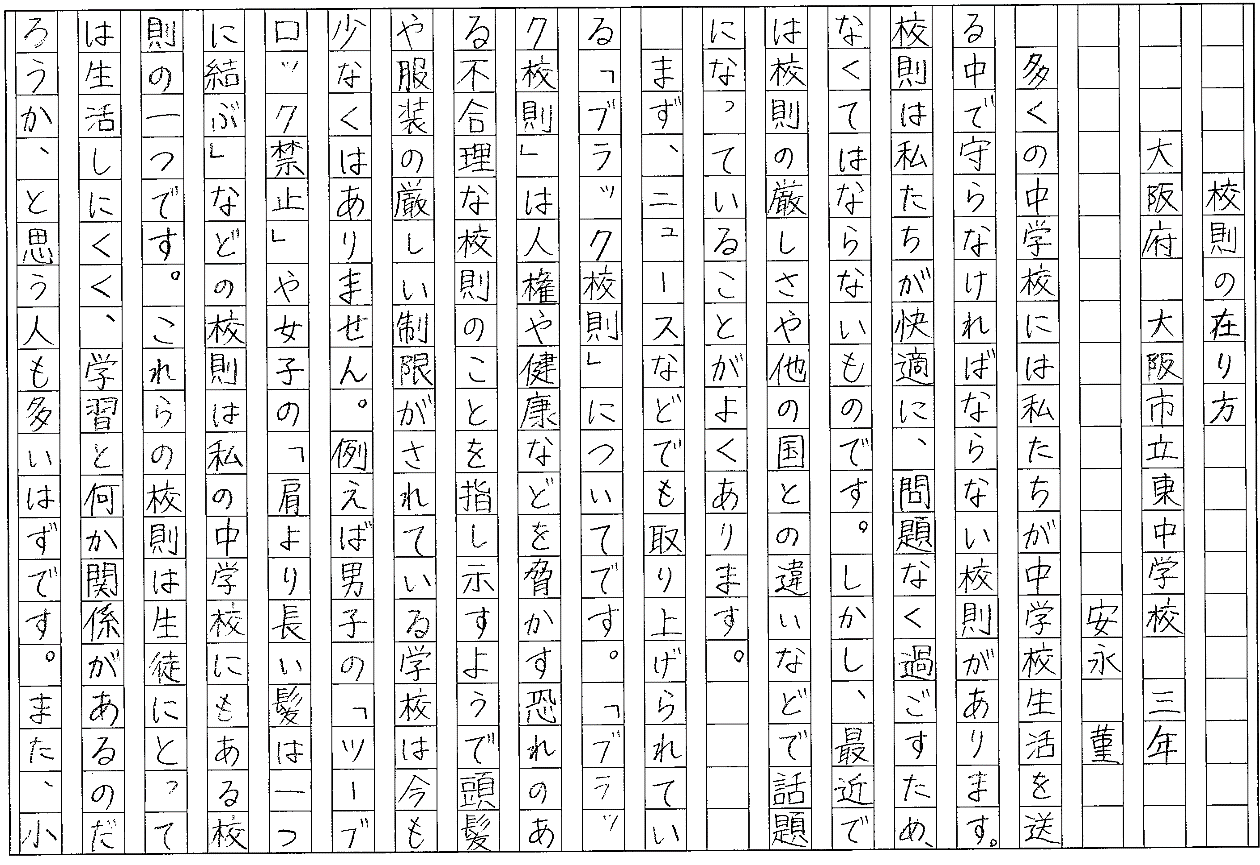 校則の在り方
大阪府　大阪市立東中学校　三年
安永　菫
多くの中学校には私たちが中学校生活を送
る中で守らなければならない校則があります。
校則は私たちが快適に、問題なく過ごすため、
なくてはならないものです。しかし、最近で
は校則の厳しさや他の国との違いなどで話題
になっていることがよくあります。
まず、ニュースなどでも取り上げられてい
る「ブラック校則」についてです。「ブラッ
ク校則」は人権や健康などを脅かす恐れのあ
る不合理な校則のことを指し示すようで頭髪
や服装の厳しい制限がされている学校は今も
少なくはありません。例えば男子の「ツーブ
ロック禁止」や女子の「肩より長い髪は一つ
に結ぶ」などの校則は私の中学校にもある校
則の一つです。これらの校則は生徒にとって
は生活しにくく、学習と何か関係があるのだ
ろうか、と思う人も多いはずです。また、小